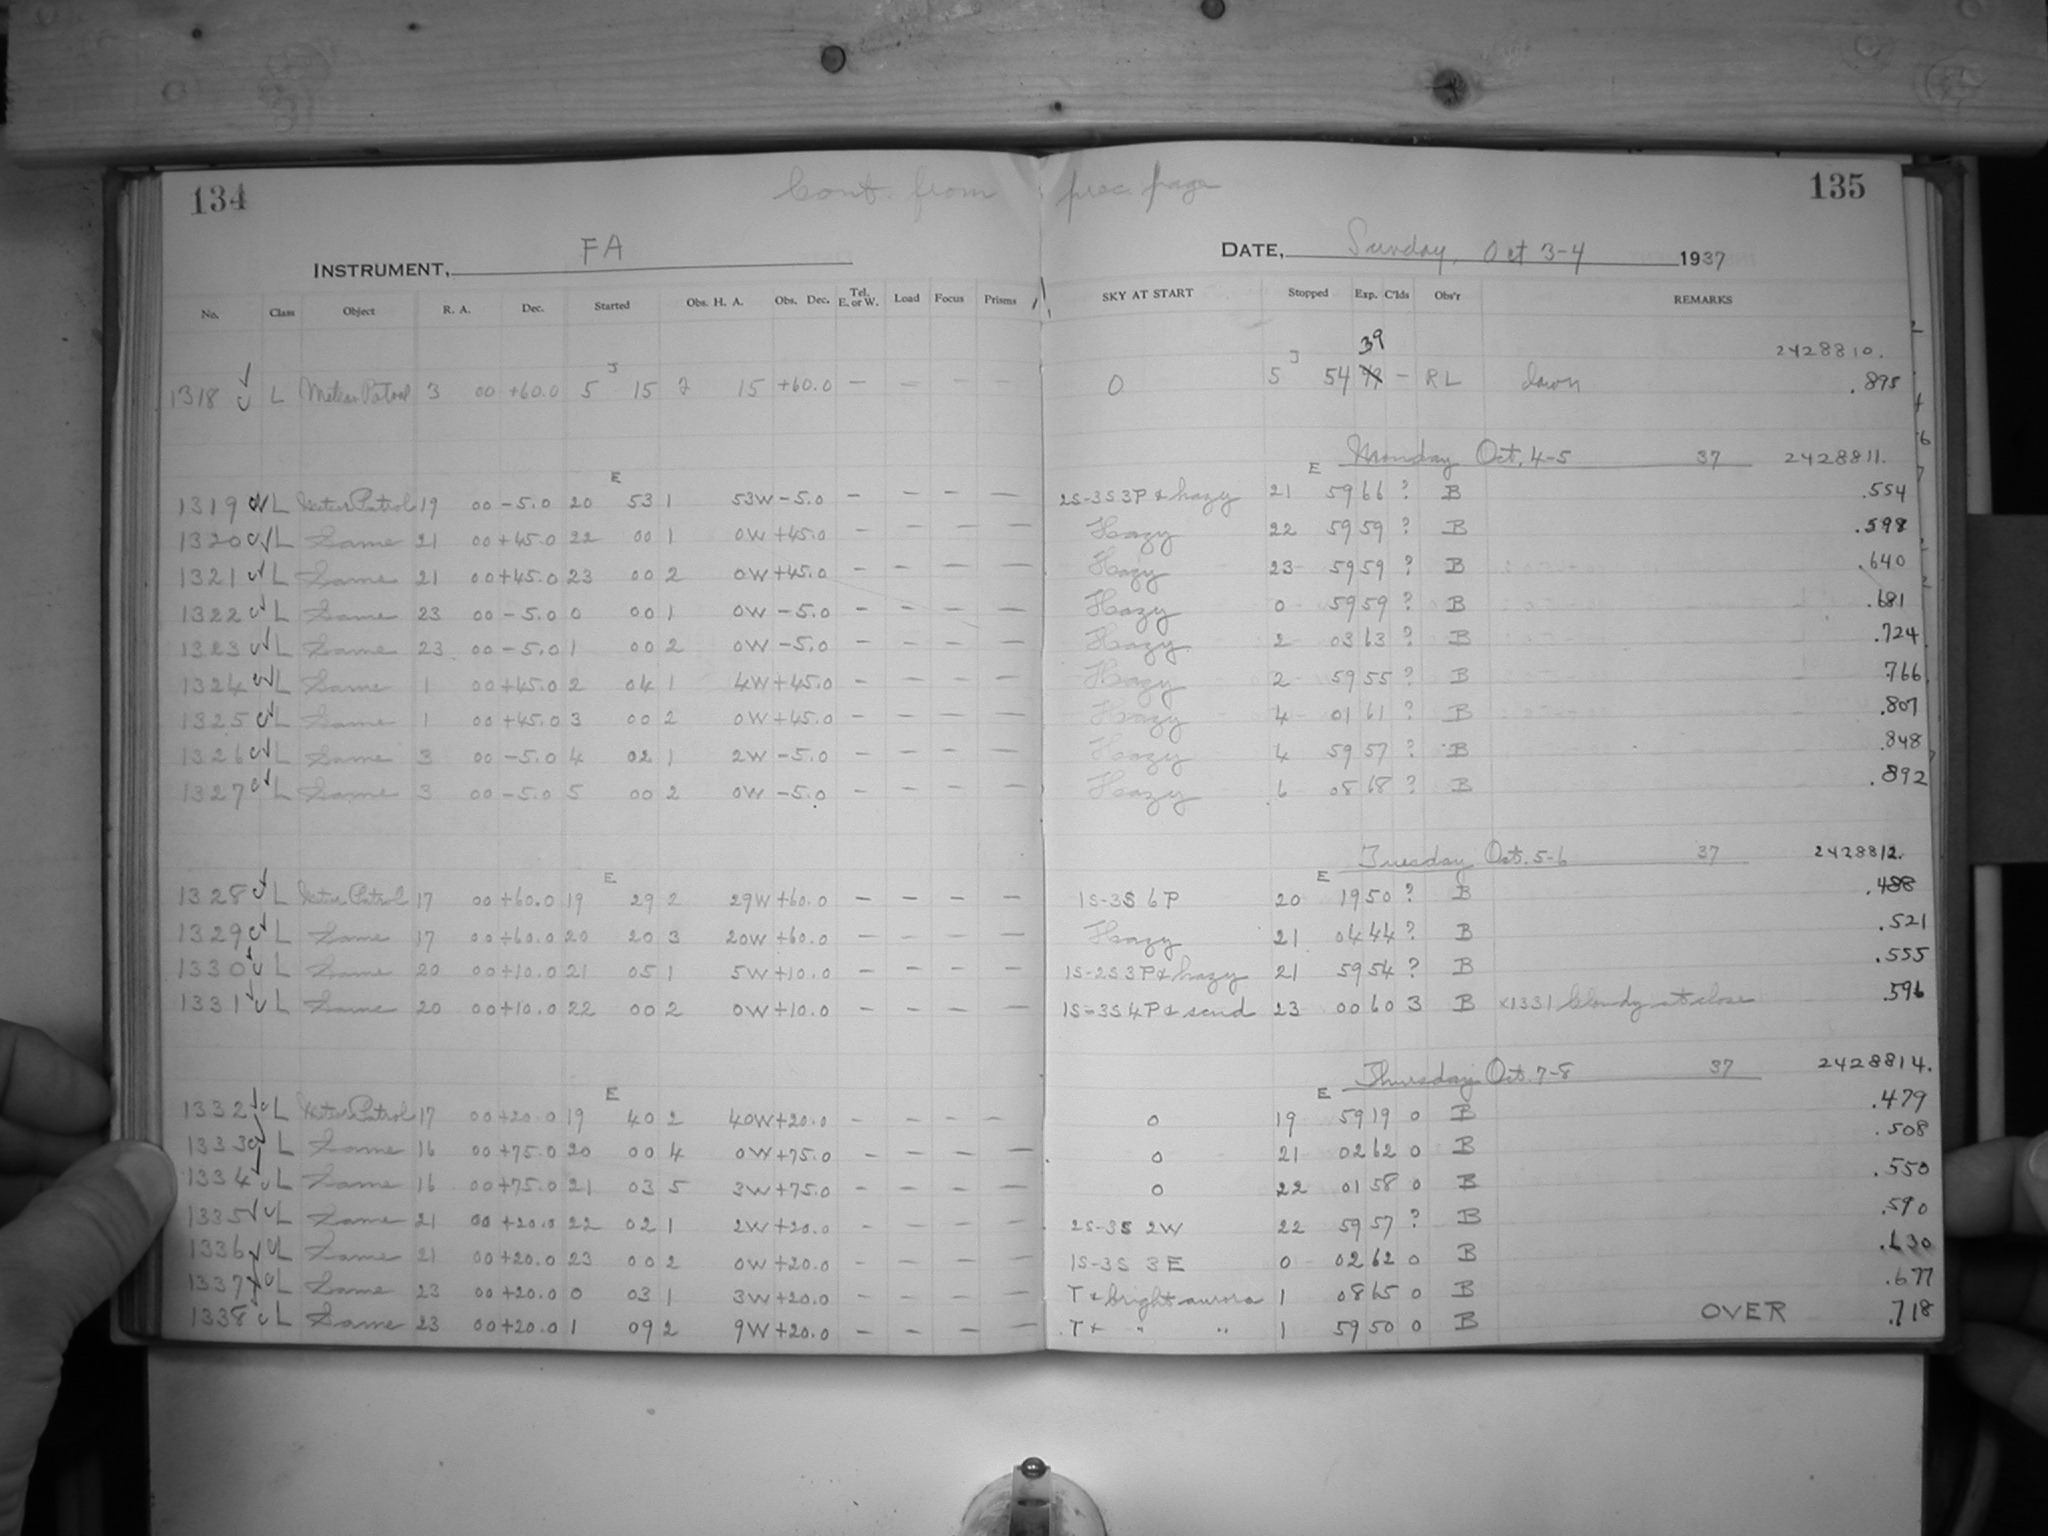 134 Cont. from prec. page 135
INSTRUMENT, FA DATE, Sunday, Oct 3-4 1937
No. Class Object R. A. Dec. Started Obs. H. A. Obs. Dec. Tel. E. or W. Load Focus Prisms SKY AT START Stopped Exp. C'lds Obs'r REMARKS
39 2428810.
J J
1318 L Meteor Patrol 3 00 +60.0 5 15 2 15 +60.0 — — — — 0 5 54 — RL dawn .895
E E Monday Oct. 4-5 37 2428811.
1319 L Meteor Patrol 19 00 -5.0 20 53 1 53W -5.0 — — — — 2S-3S 3P & hazy 21 59 66 ? B .554
1320 L Same 21 00 +45.0 22 00 1 0W +45.0 — — — — Hazy 22 59 59 ? B .598
1321 L Same 21 00 +45.0 23 00 2 0W +45.0 — — — — Hazy 23 59 59 ? B .640
1322 L Same 23 00 -5.0 0 00 1 0W -5.0 — — — — Hazy 0 59 59 ? B .681
1323 L Same 23 00 -5.0 1 00 2 0W -5.0 — — — — Hazy 2 03 63 ? B .724
1324 L Same 1 00 +45.0 2 04 1 4W +45.0 — — — — Hazy 2 59 55 ? B .766
1325 L Same 1 00 +45.0 3 00 2 0W +45.0 — — — — Hazy 4 01 61 ? B .807
1326 L Same 3 00 -5.0 4 02 1 2W -5.0 — — — — Hazy 4 59 57 ? B .848
1327 L Same 3 00 -5.0 5 00 2 0W -5.0 — — — — Hazy 6 08 68 ? B .892
E E Tuesday Oct. 5-6 37 2428812.
1328 L Meteor Patrol 17 00 +60.0 19 29 2 29W +60.0 — — — — 1S-3S 6P 20 19 50 ? B .488
1329 L Same 17 00 +60.0 20 20 3 20W +60.0 — — — — Hazy 21 04 44 ? B .521
1330 L Same 20 00 +10.0 21 05 1 5W +10.0 — — — — 1S-2S 3P & hazy 21 59 54 ? B .555
1331 L Same 20 00 +10.0 22 00 2 0W +10.0 — — — — 1S-3S 4P & scud 23 00 60 3 B x1331 Cloudy at close .596
E E Thursday Oct. 7-8 37 2428814.
1332 L Meteor Patrol 17 00 +20.0 19 40 2 40W +20.0 — — — — 0 19 59 19 0 B .479
1333 L Same 16 00 +75.0 20 00 4 0W +75.0 — — — — 0 21 02 62 0 B .508
1334 L Same 16 00 +75.0 21 03 5 3W +75.0 — — — — 0 22 01 58 0 B .550
1335 L Same 21 00 +20.0 22 02 1 2W +20.0 — — — — 2S-3S 2W 22 59 57 ? B .590
1336 L Same 21 00 +20.0 23 00 2 0W +20.0 — — — — 1S-3S 3E 0 02 62 0 B .630
1337 L Same 23 00 +20.0 0 03 1 3W +20.0 — — — — T & bright aurora 1 08 65 0 B .677
1338 L Same 23 00 +20.0 1 09 2 9W +20.0 — — — — T & " " 1 59 50 0 B OVER .718